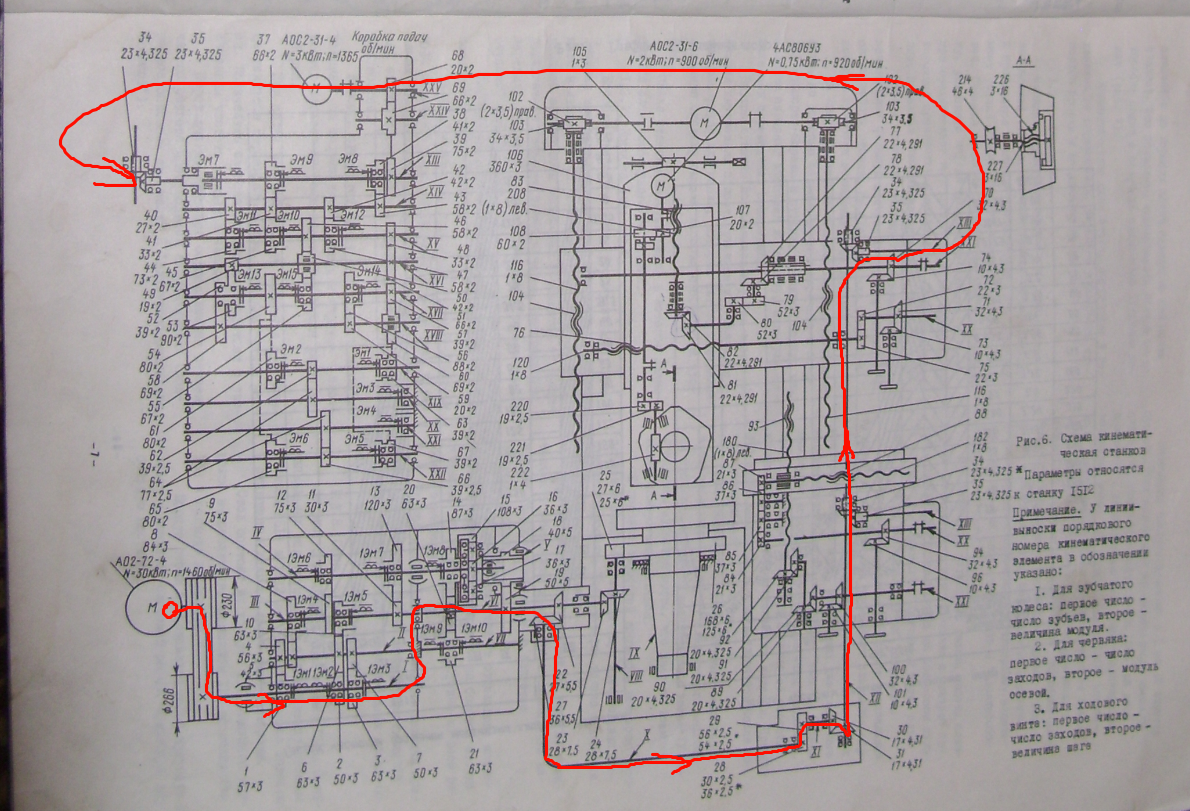 34
23×4,325
35
23×4,325
37
66×2
АОС2-31-4
N=3квт; n=1365
об/мин
Коробка подач
68
20×2
69
66×2
38
41×2
39
75×2
42
42×2
43
58×2
46
58×2
48
33×2
47
58×2
50
42×2
51
66×2
57
39×2
56
88×2
60
69×2
59
20×2
63
39×2
67
39×2
66
39×2,5
XXV
XXIV
XIII
XIV
XV
XVI
XVII
XVIII
XIX
XX
XXI
XXII
Эм7
Эм9
Эм8
Эм11
Эм10
Эм12
Эм13
Эм15
Эм14
Эм2
Эм1
Эм3
Эм4
Эм6
Эм5
40
27×2
41
33×2
44
73×2
45
67×2
49
19×2
52
39×2
53
90×2
54
80×2
58
69×2
55
67×2
61
80×2
62
39×2,5
64
77×2,5
65
80×2
105
1×3
АОС2-31-6
N=2квт; n=900 об/мин
4АС80б9У3
N=0,75квт: n=920об/мин
102
(2×3,5)прав.
103
34×3,5
106
360×3
83
208
(1×8) лев.
108
60×2
116
1×8
104
76
120
1×8
107
20×2
М
М
102
(2×3,5)прав
103
34×3,5
77
22×4,291
78
22×4,291
34
23×4,325
35
23×4,325
70
32×4,3
XIII
XXI
74
10×4,3
72
22×3
71
32×4,3
XX
73
10×4,3
75
22×3
116
1×8
88
182
1×8
34
23×4,325
35
23×4,325
79
52×3
80
52×3
104
82
22×4,291
81
22×4,291
А
А
220
19×2,5
221
19×2,5
222
1×4
93
180
(1×8)лев.
87
21×3
86
37×3
85
37×3
84
21×3
92
91
20×4,325
89
20×4,325
90
20×4,325
26
168×6
125×6*
25
27×6
25×6*
XIII
XX
94
32×4,3
96
10×4,3
XXI
100
32×4,3
101
10×4,3
XII
30
17×4,31
31
17×4,31
XI
29
56×2,5
54×2,5*
28
30×2,5
36×2,5*
X
IX
VIII
А-А
214
46×4
226
3×16
227
3×16
А02-72-4
N=30квт; n=1460об/мин
М
8
84×3
9
75×3
12
75×3
11
30×3
13
120×3
20
63×3
14
87×3
15
108×3
16
36×3
18
40×5
17
36×3
19
50×5
IV
III
II
I
V
VI
VII
1Эм6
1Эм7
1Эм8
1Эм4
1Эм5
1Эм9
1Эм10
1Эм1
1Эм2
1Эм3
ф230
ф268
10
63×3
4
56×3
5
42×3
1
57×3
6
63×3
2
50×3
3
63×3
7
50×3
21
63×3
22
27×5,5
27
36×5,5
23
28×7,5
24
28×7,5
- 7 -
Рис.6. Схема кинемати-
ческая станков
* Параметры относятся
к станку 1512
Примечание. У линии-
выноски порядкового
номера кинематического
элемента в обозначении
указано:
1. Для зубчатого
колеса: первое число -
число зубьев, второе -
величина модуля.
2. Для червяка:
первое число - число
заходов, второе - модуль
осевой.
3. Для ходового
винта: первое число -
число заходов, второе -
величина шага